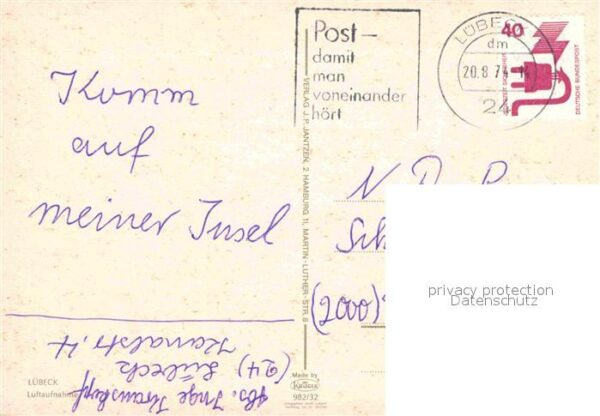 Komm
auf
meiner Insel
Post –
damit
man
voneinander
hört
LÜBECK
dm
20.8.74
24
40
JEDERZEIT SICHERHEIT
DEUTSCHE BUNDESPOST
VERLAG J. P. JANTZEN, 2 HAMBURG 11, MARTIN-LUTHER-STR. 8
N D P
Sch
(2000)
privacy protection
Datenschutz
Abs. Inge
(24) Lübeck
Kanalstr. 4
LÜBECK
Luftaufnahme
Made by
Krüger
982/32